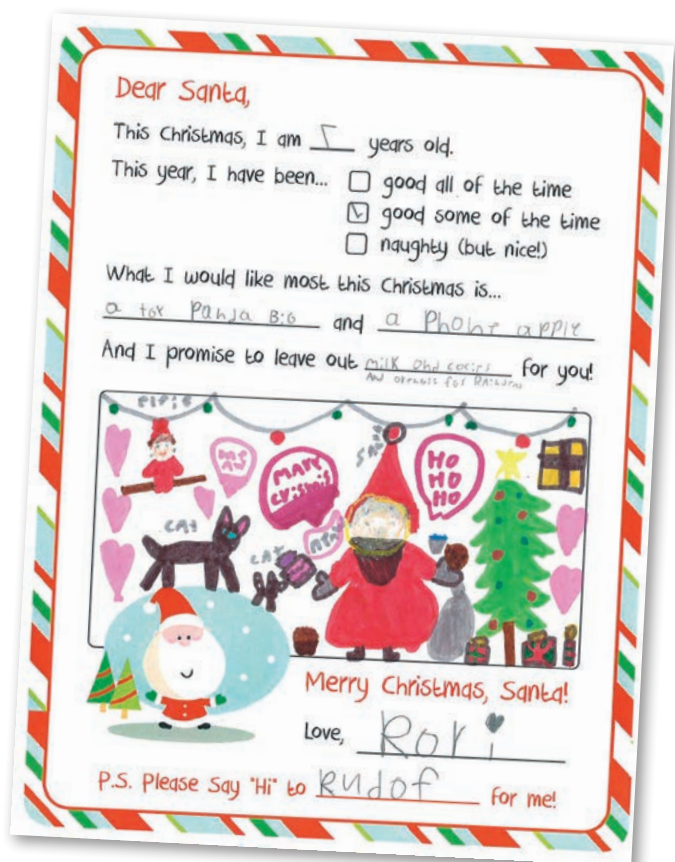 Dear Santa,
This Christmas, I am 5 years old.
This year, I have been... good all of the time
good some of the time
naughty (but nice!)
What I would like most this Christmas is...
a toy Panda BiG and a Phone apple
And I promise to leave out milk and cocies for you!
And for
elfie
MEAW
MARY
HO
HO
HO
cat
cat
Merry Christmas, Santa!
Love, Rori
P.S. Please Say "Hi" to Rudof for me!